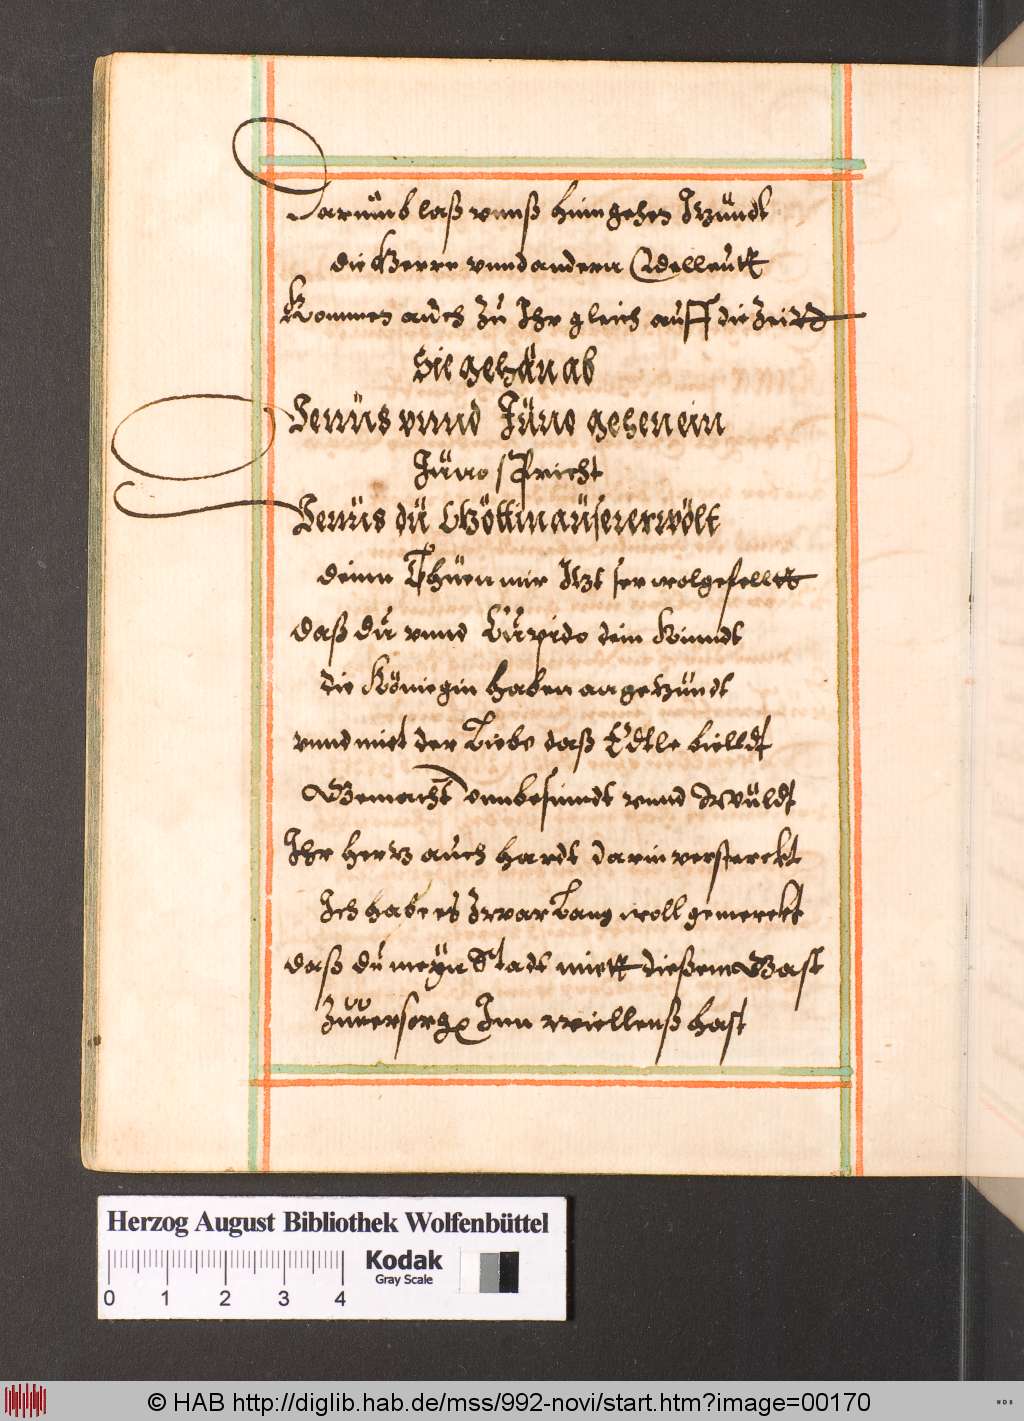 Darumb laß vnnß hinn gehen Itzundt
die Herrn vnnd andern Edelleutt
Kommen auch zu Ihr gleich auff die Zeidt
Sie gehän ab
Venüs vnnd Jüno gehen ein
Jüno spricht
Venüs dü Göttin aüserwölt
deinn Thuen mir Itzt ser wolgefellt
daß du vnnd Cüpido dein Kinndt
die Königin haben angetzündt
vnnd miet der Liebe daß Edtle bielldt
Gemacht vnnbesinndt vnnd Wüldt
Ihr Hertz auch hardt darin versterckt
Ich habe es Zwar Lang woll gemerckt
daß du meyn Stadt miett dießem Gast
Zuuersorgen Inn Wiellenß hast
Herzog August Bibliothek Wolfenbüttel
Kodak
Gray Scale
0 1 2 3 4
© HAB http://diglib.hab.de/mss/992-novi/start.htm?image=00170